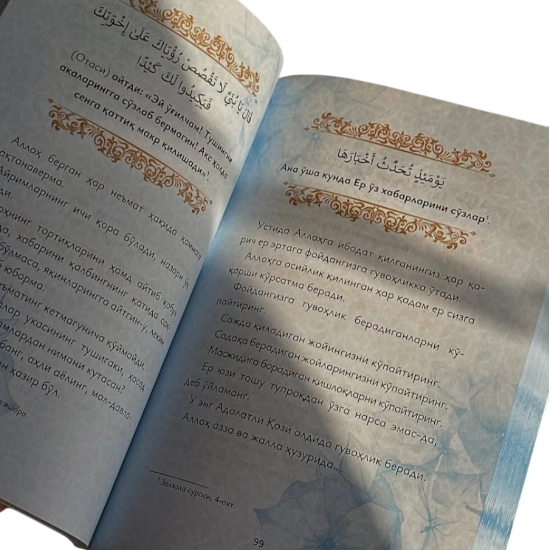 قَالَ يَا بُنَيَّ لَا تَقْصُصْ رُؤْيَاكَ عَلَىٰ إِخْوَتِكَ
فَيَكِيدُوا لَكَ كَيْدًا
(Отаси) айтди: «Эй ўғилчам! Тушингни
акаларингга сўзлаб бермагин! Акс ҳолда
сенга қаттиқ макр қилишади».
Аллоҳ берган ҳар неъмат ҳақида ҳаммага
мақтанаверма.
Айримларнинг ичи қора бўлади, назари
тортиқларини ҳамд айтиб қабул
хабарини қалбингнинг қатида сақ
бўлмаса, яқинларингга айтгин-у, лекин
юборма.
кетмагунича қўймайди.
укасининг тушигаки, ҳасад
нимани кутасан?
аҳли аёлинг, мол-давла-
ҳазир бўл.
ишора
يَوْمَئِذٍ تُحَدِّثُ أَخْبَارَهَا
Ана ўша кунда Ер ўз хабарларини сўзлар¹.
Устида Аллоҳга ибодат қилганингиз ҳар қа-
рич ер эртага фойдангизга гувоҳликка ўтади.
Аллоҳга осийлик қилинган ҳар қадам ер сизга
қарши кўрсатма беради.
Фойдангизга гувоҳлик берадиганларни кў-
пайтиринг.
Сажда қиладиган жойингизни кўпайтиринг.
Садақа берадиган жойларингизни кўпайтиринг.
Масжидга борадиган қишлоқларни кўпайтиринг.
Ер юзи тошу тупроқдан ўзга нарса эмас-да,
деб ўйламанг.
У энг Адолатли Қози олдида гувоҳлик беради.
Аллоҳ азза ва жалла ҳузурида...
¹ Залзала сураси, 4-оят.
99